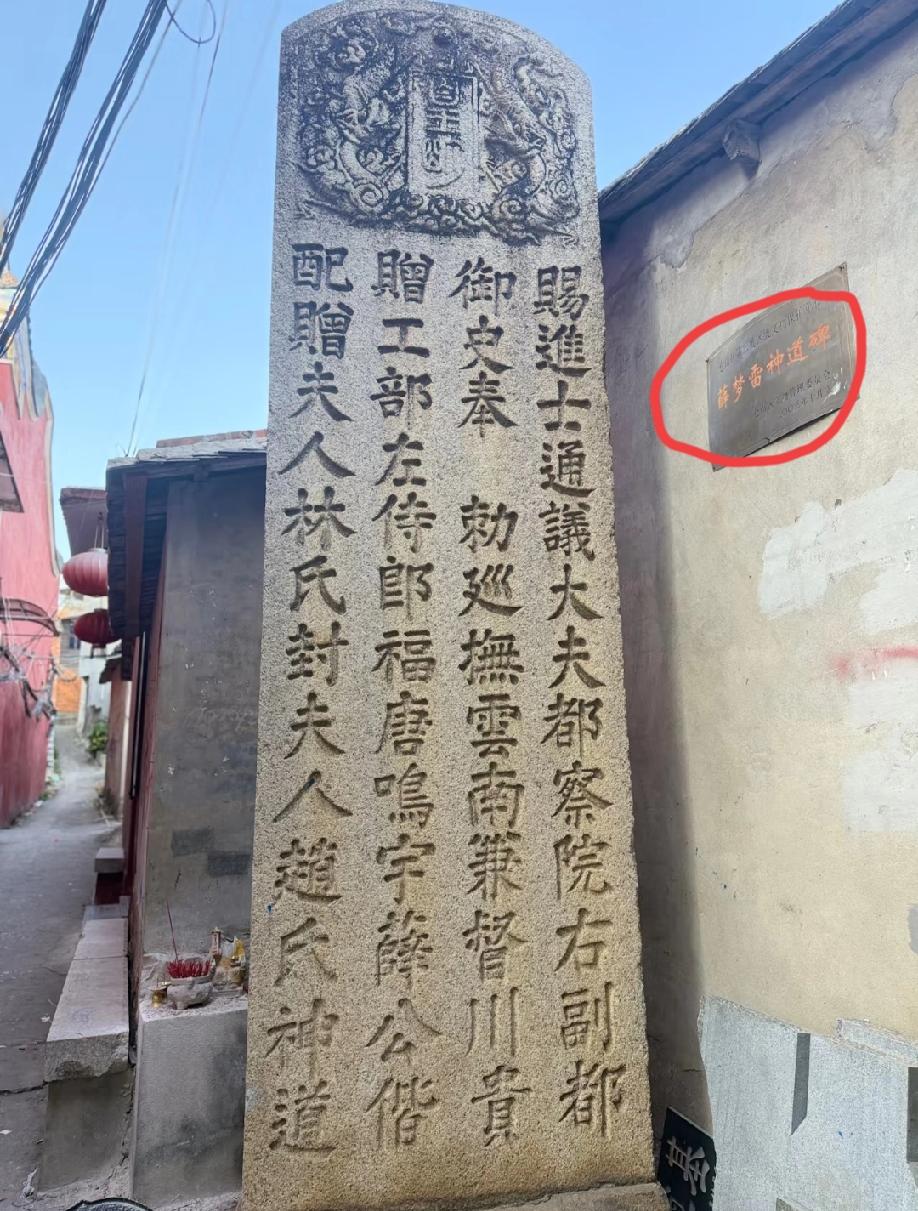 皇明
賜進士通議大夫都察院右副都
御史奉 勅廵撫雲南兼督川貴
贈工部左侍郎福唐鳴宇薛公偕
配贈夫人林氏封夫人趙氏神道
薛梦雷神道碑